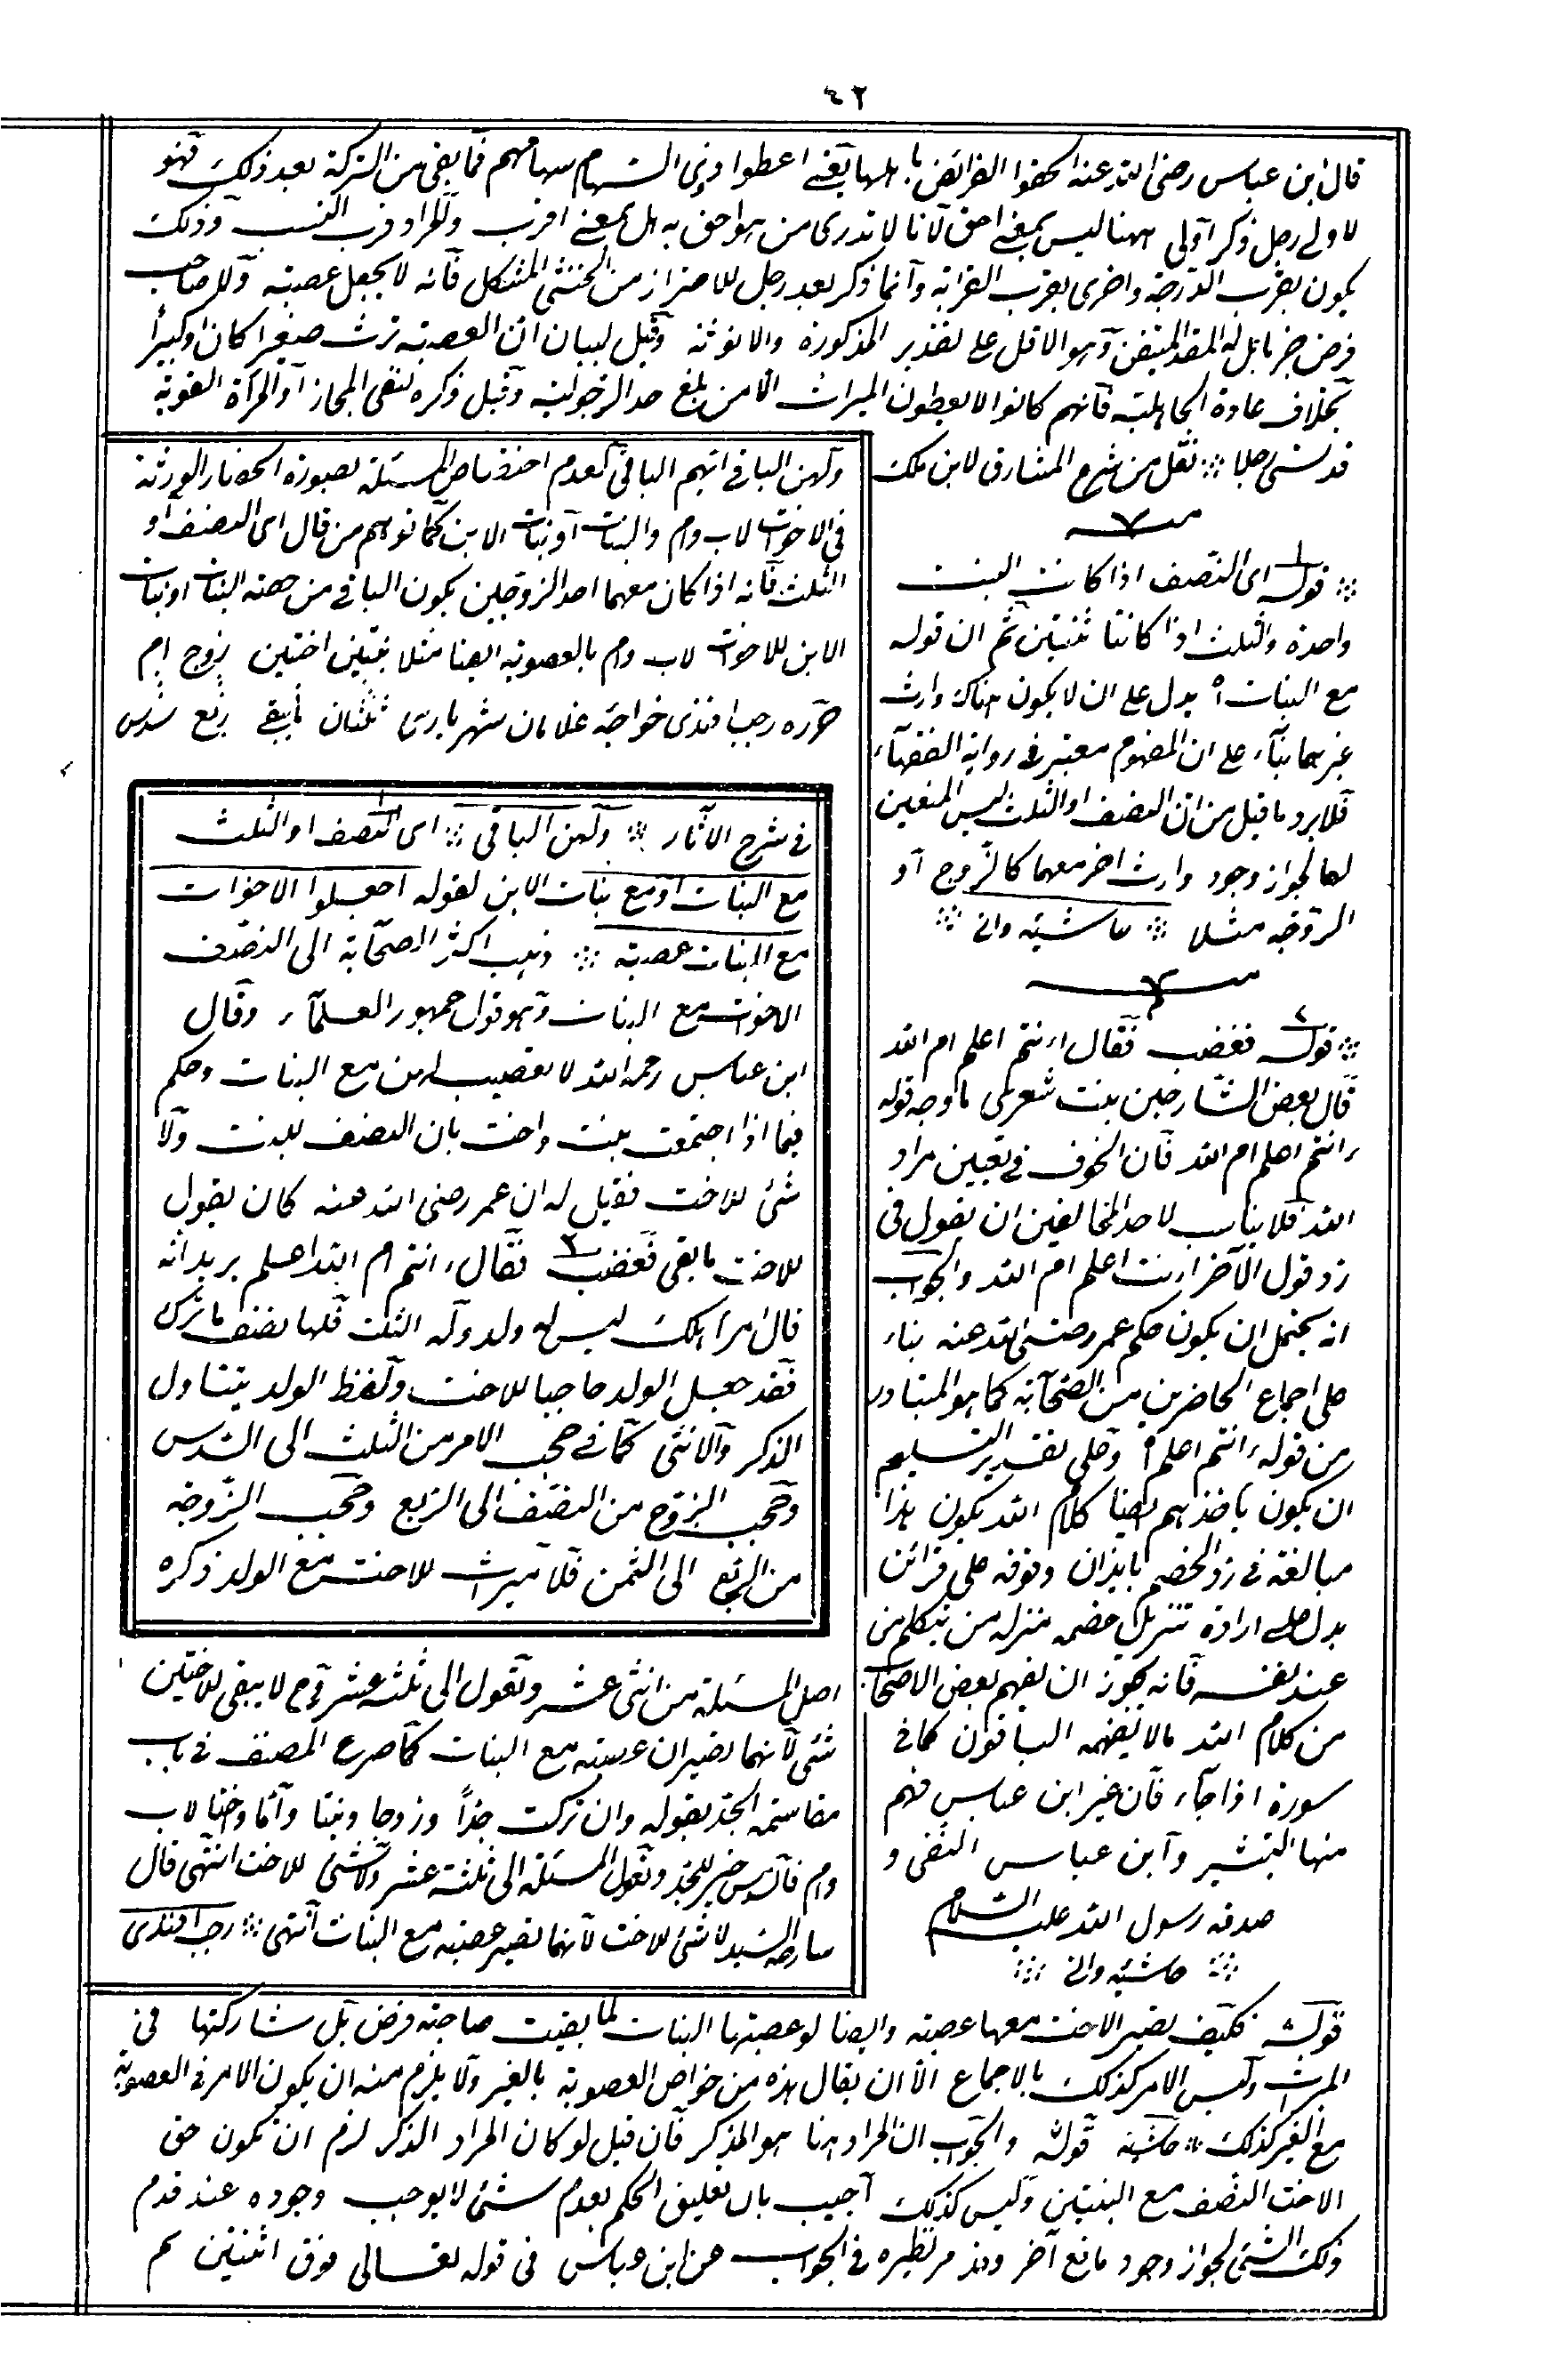 ٤٢
قال ابن عباس رضى الله عنه الحقوا الفرائض باهلها يعنى اعطوا ذوى السهام سهامهم فما بقى من التركة بعد ذلك فهو
لاولى رجل ذكر اولى ههنا ليس بمعنى احق لانا لا ندرى من هو احق به بل بمعنى اقرب والمراد قرب النسب وذلك
يكون بقرب الدرجة واخرى بقرب القرابة وانما ذكر بعد رجل للاحتراز من الخنثى المشكل فانه لا يجعل عصبة ولا صاحب
فرض جزما بل له القدر المتيقن وهو الاقل على تقدير الذكورة والانوثة وقيل لبيان ان العصبة ترث صغيرا كان او كبيرا
بخلاف عادة الجاهلية فانهم كانوا لا يعطون الميراث الا من بلغ حد الرجولية وقيل ذكره لنفى المجاز اذ المرأة القوية
قد تسمى رجلا ∴ نقل من شرح المشارق لابن ملك
∴ قوله اى النصف اذا كانت البنت
واحدة والثلث اذا كانتا ثنتين ثم ان قوله
مع البنات آه يدل على ان لا يكون هناك وارث
غيرهما بناء على ان المفهوم معتبر فى رواية الفقهاء
فلا يرد ما قيل من ان النصف او الثلث ليس المتعين
لهما لجواز وجود وارث اخر معهما كالزوج او
الزوجة مثلا ∴ حاشيه وانى ∴
∴ قوله فغضب فقال ءانتم اعلم ام الله
قال بعض الشارحين بنت شعرى ما وجه قوله
ءانتم اعلم ام الله فان الخوف فى تعيين مراد
الله فلا يناسب لاحد المخالفين ان يقول فى
رد قول الآخر ءانت اعلم ام الله والجواب
انه يحتمل ان يكون حكم عمر رضى الله عنه بناء
على اجماع الحاضرين من الصحابة كما هو المتبادر
من قوله ءانتم اعلم آه وعلى تقدير التسليم
ان يكون ياخذهم ايضا كلام الله يكون هذا
مبالغة فى رد الخصم بايذان وقوفه على قرائن
يدل على ارادة تنزيل خصمه منزلة من يتكلم من
عند نفسه فانه يجوز ان يفهم بعض الاصحاب
من كلام الله ما لا يفهمه الباقون كما فى
سورة اذا جاء فان غير ابن عباس فهم
منها التبشير وابن عباس النفى و
صدقه رسول الله عليه السلام
∴ حاشيه وانى ∴
ولهن الباقى ابهم الباقى لعدم اختصاص المسئلة بصورة انحصار الورثة
فى الاخوات لاب وام والبنات او بنات الابن كما توهم من قال اى النصف او
الثلث فانه اذا كان معهما احد الزوجين يكون الباقى من حصة البنات او بنات
الابن للاخوات لاب وام بالعصوبة ايضا مثلا بنتين اختين زوج ام
حرره رجب افندى خواجه غلامان شهريارى ثلثان مابقى ربع سدس
فى شرح الآثار ∴ ولهن الباقى ∴ اى النصف او الثلث
مع البنات او مع بنات الابن لقوله اجعلوا الاخوات
مع البنات عصبة ∴ ذهب اكثر الصحابة الى
الاخوات مع البنات وهو قول جمهور العلماء وقال
ابن عباس رحمه الله لا تعصيب لهن مع البنات وحكم
فيما اذا اجتمعت بنت واخت بان النصف للبنت ولا
شئ للاخت فقيل له ان عمر رضى الله عنه كان يقول
للاخت ما بقى فغضب فقال ءانتم ام الله اعلم يريد انه
قال ان امرؤ هلك ليس له ولد وله اخت فلها نصف ما ترك
فقد جعل الولد حاجبا للاخت ولفظ الولد يتناول
الذكر والانثى كما فى حجب الام من الثلث الى السدس
وحجب الزوج من النصف الى الربع وحجب الزوجة
من الربع الى الثمن فلا ميراث للاخت مع الولد ذكره
اصل المسئلة من اثنى عشر وتعول الى ثلثة عشر وح لا يبقى للاختين
شئ لانهما تصيران عصبة مع البنات كما صرح المصنف فى باب
مقاسمة الجد بقوله وان تركت جدا وزوجا وبنتا واما واختا لاب
وام فالسدس خير للجد وتعول المسئلة الى ثلثة عشر ولا شئ للاخت انتهى قال
شارحه السيد لا شئ للاخت لانها تصير عصبة مع البنات انتهى ∴ رجب افندى
قوله فكيف تصير الاخت معها عصبة وايضا لو عصبتها البنات لما بقيت صاحبة فرض بل شاركتها فى
الميراث وليس الامر كذلك بالاجماع الا ان يقال هذه من خواص العصوبة بالغير ولا يلزم منه ان يكون الامر فى العصوبة
مع الغير كذلك ∴ حاشيه قوله والجواب ان المراد هنا هو الذكر فان قيل لو كان المراد الذكر لزم ان تكون حق
الاخت النصف مع البنتين وليس كذلك اجيب بان تعليق الحكم بعدم شئ لا يوجب وجوده عند عدم
ذلك الشئ لجواز وجود مانع آخر وقد مر نظيره فى الجواب عن ابن عباس فى قوله تعالى فوق اثنتين